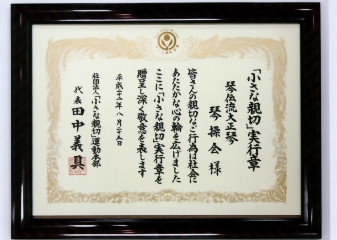 「小さな親切」実行章
琴伝流大正琴
琴操会様
皆さんの親切なご行為は社会に
あたたかな心の輪を広げました
ここに「小さな親切」実行章を
贈呈し深く敬意を表します
平成二十二年八月二十五日
社団法人「小さな親切」運動本部
代表 田中義具